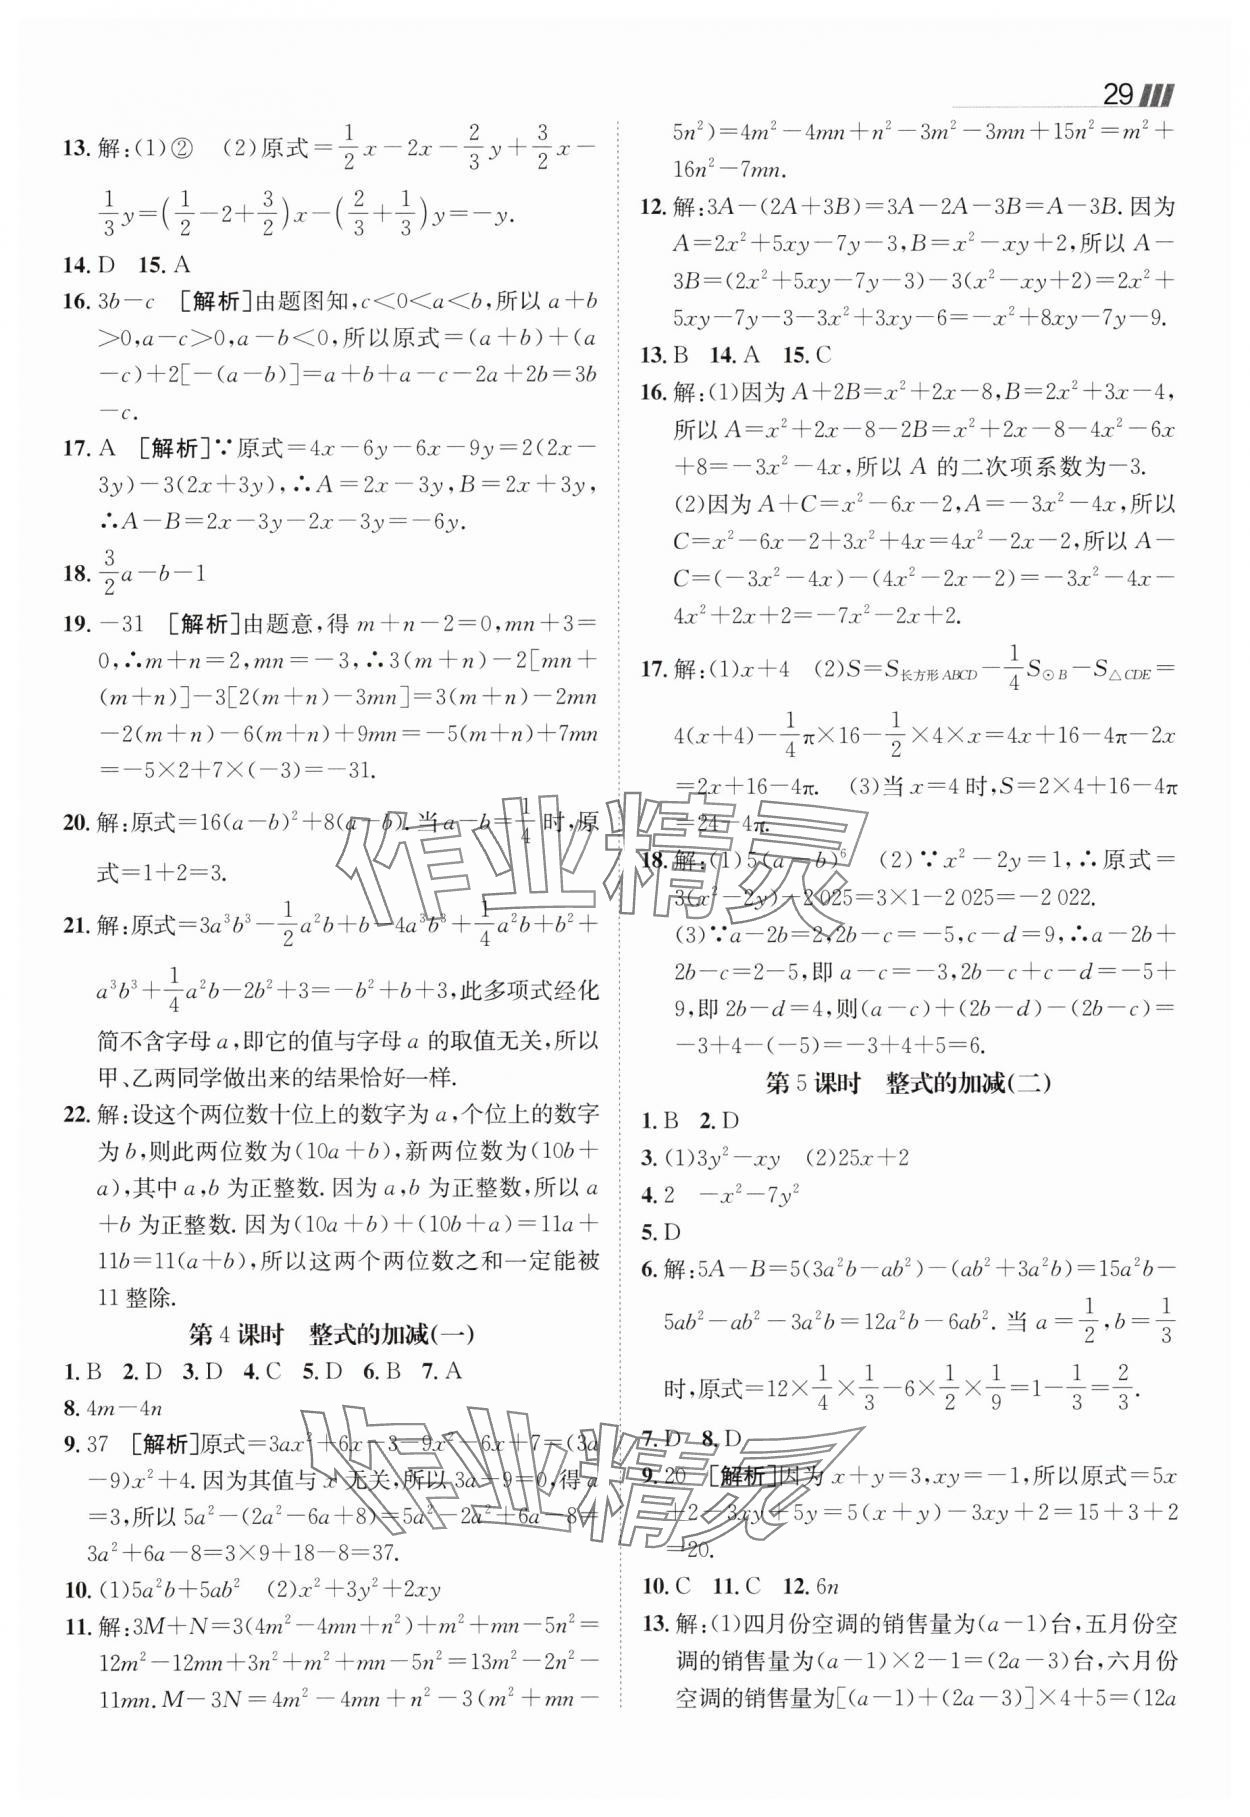 29
13. 解:(1)② (2)原式=1/2x-2x-2/3y+3/2x-
1/3y=(1/2-2+3/2)x-(2/3+1/3)y=-y.
14. D 15. A
16. 3b-c [解析]由题图知,c<0<a<b,所以 a+b
>0,a-c>0,a-b<0,所以原式=(a+b)+(a
-c)+2[-(a-b)]=a+b+a-c-2a+2b=3b
-c.
17. A [解析]∵原式=4x-6y-6x-9y=2(2x-
3y)-3(2x+3y),∴A=2x-3y,B=2x+3y,
∴A-B=2x-3y-2x-3y=-6y.
18. 3/2a-b-1
19. -31 [解析]由题意,得 m+n-2=0,mn+3=
0,∴m+n=2,mn=-3,∴3(m+n)-2[mn+
(m+n)]-3[2(m+n)-3mn]=3(m+n)-2mn
-2(m+n)-6(m+n)+9mn=-5(m+n)+7mn
=-5×2+7×(-3)=-31.
20. 解:原式=16(a-b)²+8(a-b).当 a-b=1/4 时,原
式=1+2=3.
21. 解:原式=3a³b³-1/2a²b+b-4a³b³+1/4a²b+b²+
a³b³+1/4a²b-2b²+3=-b²+b+3,此多项式经化
简不含字母 a,即它的值与字母 a 的取值无关,所以
甲、乙两同学做出来的结果恰好一样.
22. 解:设这个两位数十位上的数字为 a,个位上的数字
为 b,则此两位数为(10a+b),新两位数为(10b+
a),其中 a,b 为正整数.因为 a,b 为正整数,所以 a
+b 为正整数.因为(10a+b)+(10b+a)=11a+
11b=11(a+b),所以这两个两位数之和一定能被
11 整除.
第 4 课时 整式的加减(一)
1. B 2. D 3. D 4. C 5. D 6. B 7. A
8. 4m-4n
9. 37 [解析]原式=3ax²+6x-3-9x²-6x+7=(3a
-9)x²+4.因为其值与 x 无关,所以 3a-9=0,得 a
=3,所以 5a²-(2a²-6a+8)=5a²-2a²+6a-8=
3a²+6a-8=3×9+18-8=37.
10. (1)5a²b+5ab² (2)x²+3y²+2xy
11. 解:3M+N=3(4m²-4mn+n²)+m²+mn-5n²=
12m²-12mn+3n²+m²+mn-5n²=13m²-2n²-
11mn.M-3N=4m²-4mn+n²-3(m²+mn-
5n²)=4m²-4mn+n²-3m²-3mn+15n²=m²+
16n²-7mn.
12. 解:3A-(2A+3B)=3A-2A-3B=A-3B.因为
A=2x²+5xy-7y-3,B=x²-xy+2,所以 A-
3B=(2x²+5xy-7y-3)-3(x²-xy+2)=2x²+
5xy-7y-3-3x²+3xy-6=-x²+8xy-7y-9.
13. B 14. A 15. C
16. 解:(1)因为 A+2B=x²+2x-8,B=2x²+3x-4,
所以 A=x²+2x-8-2B=x²+2x-8-4x²-6x
+8=-3x²-4x,所以 A 的二次项系数为-3.
(2)因为 A+C=x²-6x-2,A=-3x²-4x,所以
C=x²-6x-2+3x²+4x=4x²-2x-2,所以 A-
C=(-3x²-4x)-(4x²-2x-2)=-3x²-4x-
4x²+2x+2=-7x²-2x+2.
17. 解:(1)x+4 (2)S=S长方形ABCD-1/4S⊙B-S△CDE=
4(x+4)-1/4π×16-1/2×4×x=4x+16-4π-2x
=2x+16-4π. (3)当 x=4 时,S=2×4+16-4π
=24-4π.
18. 解:(1)5(a-b)⁶ (2)∵x²-2y=1,∴原式=
3(x²-2y)-2 025=3×1-2 025=-2 022.
(3)∵a-2b=2,2b-c=-5,c-d=9,∴a-2b+
2b-c=2-5,即 a-c=-3,2b-c+c-d=-5+
9,即 2b-d=4,则(a-c)+(2b-d)-(2b-c)=
-3+4-(-5)=-3+4+5=6.
第 5 课时 整式的加减(二)
1. B 2. D
3. (1)3y²-xy (2)25x+2
4. 2 -x²-7y²
5. D
6. 解:5A-B=5(3a²b-ab²)-(ab²+3a²b)=15a²b-
5ab²-ab²-3a²b=12a²b-6ab².当 a=1/2,b=1/3
时,原式=12×1/4×1/3-6×1/2×1/9=1-1/3=2/3.
7. D 8. D
9. 20 [解析]因为 x+y=3,xy=-1,所以原式=5x
+2-3xy+5y=5(x+y)-3xy+2=15+3+2
=20.
10. C 11. C 12. 6n
13. 解:(1)四月份空调的销售量为(a-1)台,五月份空
调的销售量为(a-1)×2-1=(2a-3)台,六月份
空调的销售量为[(a-1)+(2a-3)]×4+5=(12a
作业精灵
作业精灵